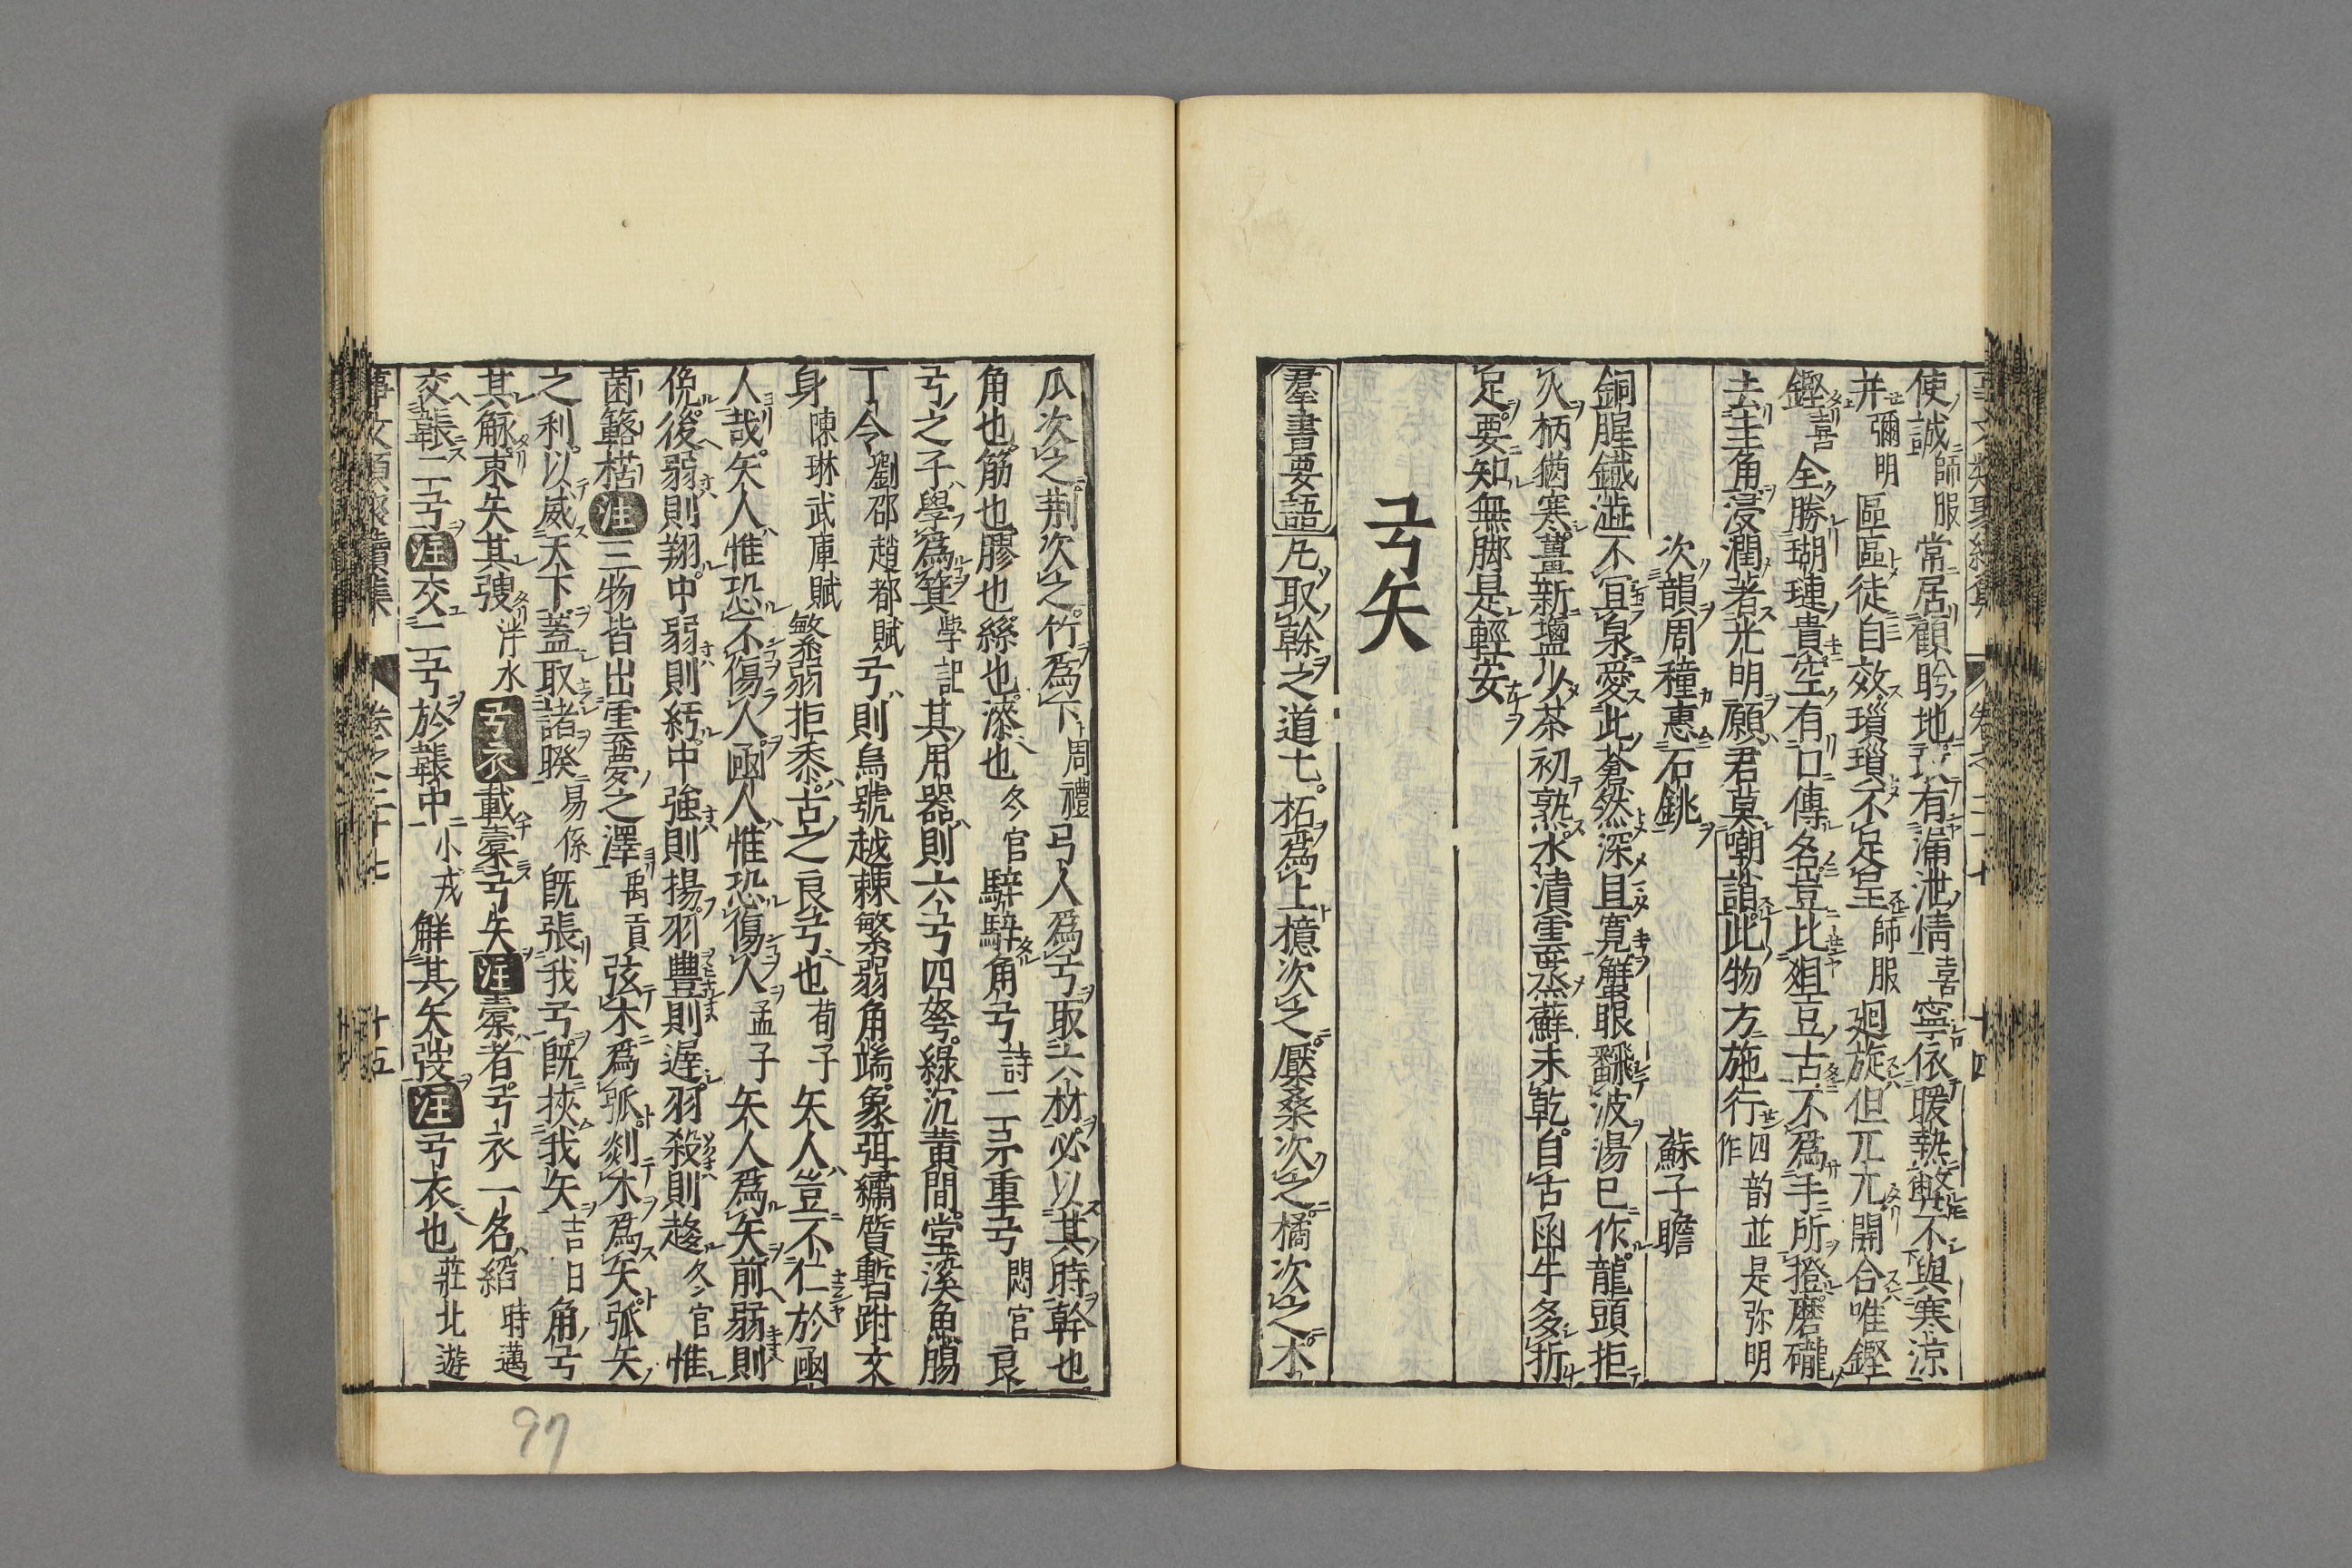 使誠師服常居顧盻地有漏泄情喜寧依暖熱弊不與寒涼
并彌明區區徒自效瑣瑣不足呈師服廻旋但兀兀開合唯鏗
鏗喜全勝瑚璉貴空有口傳名豈比俎豆古不爲手所撜磨礲
去圭角浸潤著光明願君莫嘲誚此物方施行四韵並是弥明作
次韻周穜惠石銚
蘇子瞻
銅腥鐵澁不冝泉愛此蒼然深且寛蟹眼飜波湯已作龍頭拒
火柄猶寒薑新塩少茶初熟水漬雲蒸蘇未乾自古函牛多折
足要知無脚是輕安
弓矢
羣書要語凡取幹之道七柘爲上檍次之檿桑次之橘次之木
瓜次之荆次之竹爲下周禮弓人爲弓取六材必以其時幹也
角也筋也膠也絲也漆也冬官騂騂角弓詩二矛重弓閟宮良
弓之子學爲箕學記其用器則六弓四弩綠沉黄間堂溪魚腸
丁令劉邵趙都賦弓則烏號越棘繁弱角端象弭繡質晳跗文
身陳琳武庫賦繁弱拒黍古之良弓也荀子矢人豈不仁於函
人哉矢人惟恐不傷人函人惟恐傷人孟子矢人爲矢前弱則
俛後弱則翔中弱則紆中強則揚羽豐則遲羽殺則趮冬官惟
菌簵楛注三物皆出雲夢之澤禹貢弦木爲弧剡木爲矢弧矢
之利以威天下蓋取諸睽易係旣張我弓旣挾我矢吉日角弓
其觩束矢其搜泮水弓衣載櫜弓矢注櫜者弓衣一名韜時邁
交韔二弓注交二弓於韔中小戎解其矢弢注弓衣也莊北遊
事文類聚續集
卷之二十七
十五
十四
97